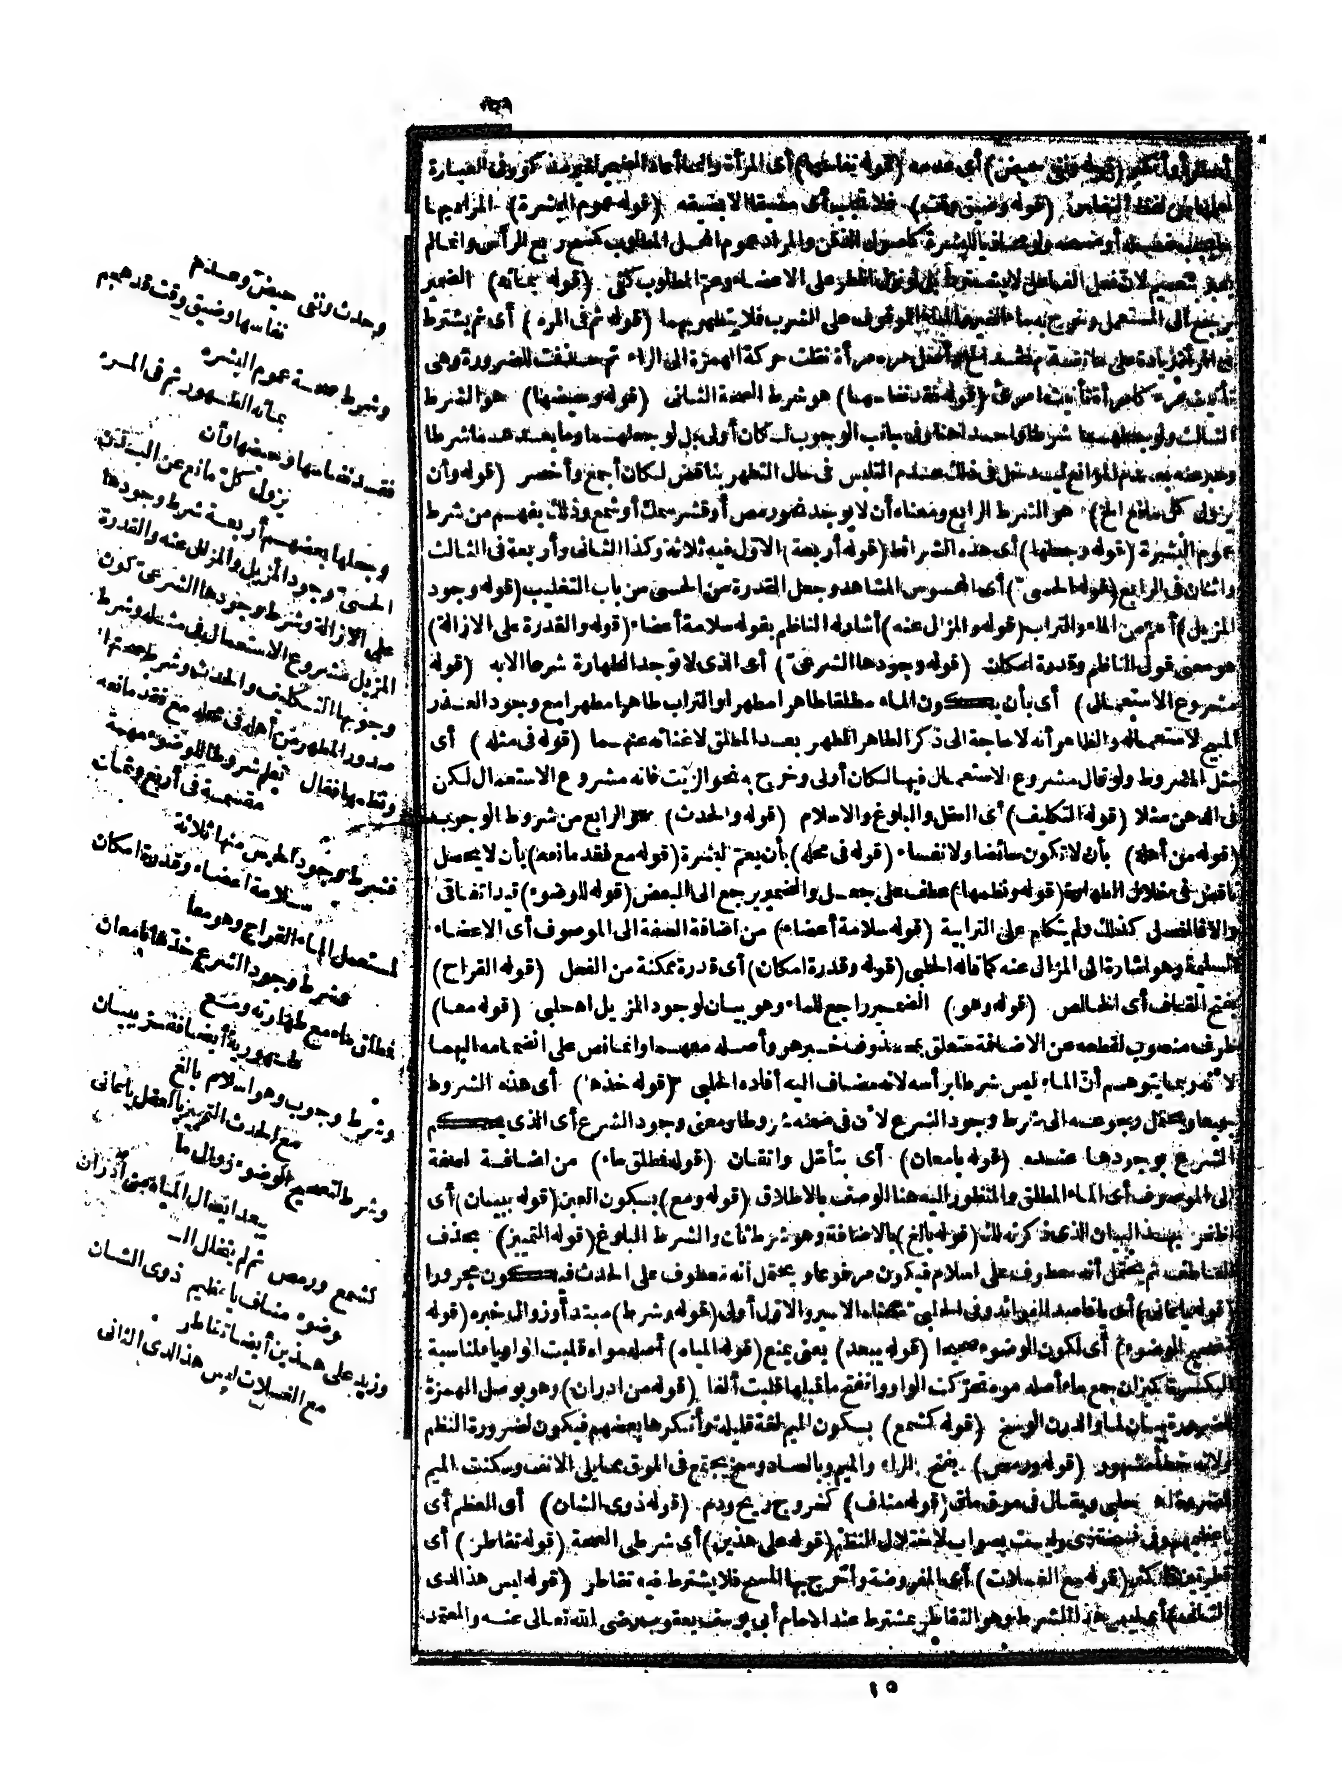 (قوله ونفى حيض) أى عدمه (قوله نفاسها) أى المرأة وانما أعاد الضمير لغير مذكور فى العبارة
(قوله وضيق وقت) (قوله عموم البشرة) المراد
كشمع ربع الرأس وانما لم
(قوله بمائه) الضمير
يرجع الى المستعمل (قوله ثم فى المره) أى ثم يشترط
فى المرأة نقلت حركة الهمزة الى الراء ثم حذفت للضرورة وهى
(قوله فقد نفاسها) هو شرط الصحة الثانى (قوله وحيضها) هو الشرط
الثالث ولو جعلهما شرطا واحدا لكان أولى
فى حال التطهر بناقض لكان أجمع وأخصر (قوله وأن
يزول كل مانع الخ) هو الشرط الرابع ومعناه أن لا يوجد نحو رمص أو قشر سمك أو شمع وذلك يفهم من شرط
عموم البشرة (قوله وجعلها) أى هذه الشرائط (قوله أربعة) الاول فيه ثلاثة وكذا الثانى وأربعة فى الثالث
واثنان فى الرابع (قوله الحسى) أى المحسوس المشاهد وجعل القدرة من الحسى من باب التغليب (قوله وجود
المزيل) أعم من الماء والتراب (قوله والمزال عنه) أشار له الناظم بقوله سلامة أعضاء (قوله والقدرة على الازالة)
هو معنى قول الناظم وقدرة امكان (قوله وجودها الشرعى) أى الذى لا توجد الطهارة شرعا الا به (قوله
مشروع الاستعمال) أى بأن يكون الماء مطلقا طاهرا مطهرا والتراب طاهرا مطهرا مع وجود العذر
المبيح لاستعماله والظاهر أنه لا حاجة الى ذكر الطاهر المطهر بعد المطلق لاغنائه عنهما (قوله فى مثله) أى
مثل المشروط ولو قال مشروع الاستعمال فيها لكان أولى وخرج به نحو الزيت فانه مشروع الاستعمال لكن
فى الدهن مثلا (قوله التكليف) أى العقل والبلوغ والاسلام (قوله والحدث) هو الرابع من شروط الوجوب
(قوله من أهله) بأن لا تكون حائضا ولا نفساء (قوله فى محله) بأن يعم البشرة (قوله مع فقد مانعه) بأن لا يحصل
ناقض فى خلال الطهارة (قوله ونظمها) عطف على جعل والضمير يرجع الى البعض (قوله للوضوء) قيد اتفاقى
والا فالغسل كذلك ولم يتكلم على الترابية (قوله سلامة أعضاء) من اضافة الصفة الى الموصوف أى الاعضاء
السليمة وهو اشارة الى المزال عنه كما قاله الحلبى (قوله وقدرة امكان) أى قدرة ممكنة من الفعل (قوله القراح)
بفتح القاف أى الخالص (قوله وهو) الضمير راجع للماء وهو بيان لوجود المزيل اه حلبى (قوله معا)
ظرف منصوب لقطعه عن الاضافة متعلق بمحذوف خبر هو وأصله معهما وانما نص على انضمامه اليهما
لأنه ربما يتوهم أن الماء ليس شرطا برأسه لانه مضاف اليه أفاده الحلبى (قوله خذها) أى هذه الشروط
جميعها ويحتمل رجوعه الى شرط وجود الشرع لأن فى ضمنه شروطا ومعنى وجود الشرع أى الذى يحكم
الشرع بوجودها عنده (قوله بامعان) أى بتأمل واتقان (قوله فمطلق ماء) من اضافة الصفة
الى الموصوف أى الماء المطلق والمنظور اليه هنا الوصف بالاطلاق (قوله ومع) بسكون العين (قوله ببيان) أى
اظفر بهذا البيان الذى ذكرته لك (قوله بالغ) بالاضافة وهو شرط ثان والشرط البلوغ (قوله التمييز) بحذف
العاطف ثم يحتمل أنه معطوف على اسلام فيكون مرفوعا ويحتمل أنه معطوف على الحدث فيكون مجرورا
(قوله يا عانى) أى يا قاصد الفوائد وفى الحلبى معناه الاسير والاول أولى (قوله وشرط) مبتدأ وزوال خبره (قوله
تصحيح الوضوء) أى لكون الوضوء صحيحا (قوله يبعد) يعنى يمنع (قوله المياه) أصله مواه قلبت الواو ياء لمناسبة
الكسرة كميزان جمع ماء أصله موه تحركت الواو وانفتح ما قبلها قلبت ألفا (قوله من ادران) وهو بوصل الهمزة
للضرورة بيان لما والدرن الوسخ (قوله كشمع) بسكون الميم لغة قليلة وأنكرها بعضهم فيكون لضرورة النظم
ولانه خطأ مشهور (قوله ورمص) بفتح الراء والميم وبالصاد وسخ يجتمع فى الموق مما يلى الانف وسكنت الميم
للضرورة اه حلبى ويقال فى موق ماق (قوله مناف) كخروج ريح ودم (قوله ذوى الشان) أى العظم أى
وفى نسخة ذى وليست بصواب لاختلال النظم (قوله على هذين) أى شرطى الصحة (قوله تقاطر) أى
قطرتين فأكثر (قوله مع الغسلات) أى المفروضة وأخرج بها المسح فلا يشترط فيه تقاطر (قوله ليس هذا لدى
الثانى) أى ليس هذا الشرط وهو التقاطر بمشترط عند الامام أبى يوسف يعقوب رضى الله تعالى عنه والمعتمد
وحدث ونفى حيض وعدم
نفاسها وضيق وقت قد هجم
وشرط صحة عموم البشره
بمائه الطهور ثم فى المره
فقد نفاسها وحيضها وأن
يزول كل مانع عن البدن
وجعلها بعضهم أربعة شرط وجودها
الحسى وجود المزيل والمزال عنه والقدرة
على الازالة وشرط وجودها الشرعى كون
المزيل مشروع الاستعمال فى مثله وشرط
وجوبها التكليف والحدث وشرط صحتها
صدور المطهر من أهله فى محله مع فقد مانعه
ونظمها فقال تعلم شروطا للوضوء مهمة
مقسمة فى أربع وثمان
فشرط وجود الحس منها ثلاثة
سلامة أعضاء وقدرة امكان
لمستعمل الماء القراح وهو معا
وشرط وجود الشرع خذها بامعان
فمطلق ماء مع طهارته ومع
طهورية أيضا فذ ببيان
وشرط وجوب وهو اسلام بالغ
مع الحدث التمييز بالعقل يا عانى
وشرط لتصحيح الوضوء زوال ما
يبعد ايصال المياه من أدران
كشمع ورمص ثم لم يتخلل الـ
وضوء مناف يا عظيم ذوى الشان
وزيد على هذين أيضا تقاطر
مع الغسلات ليس هذا لدى الثانى
١٥